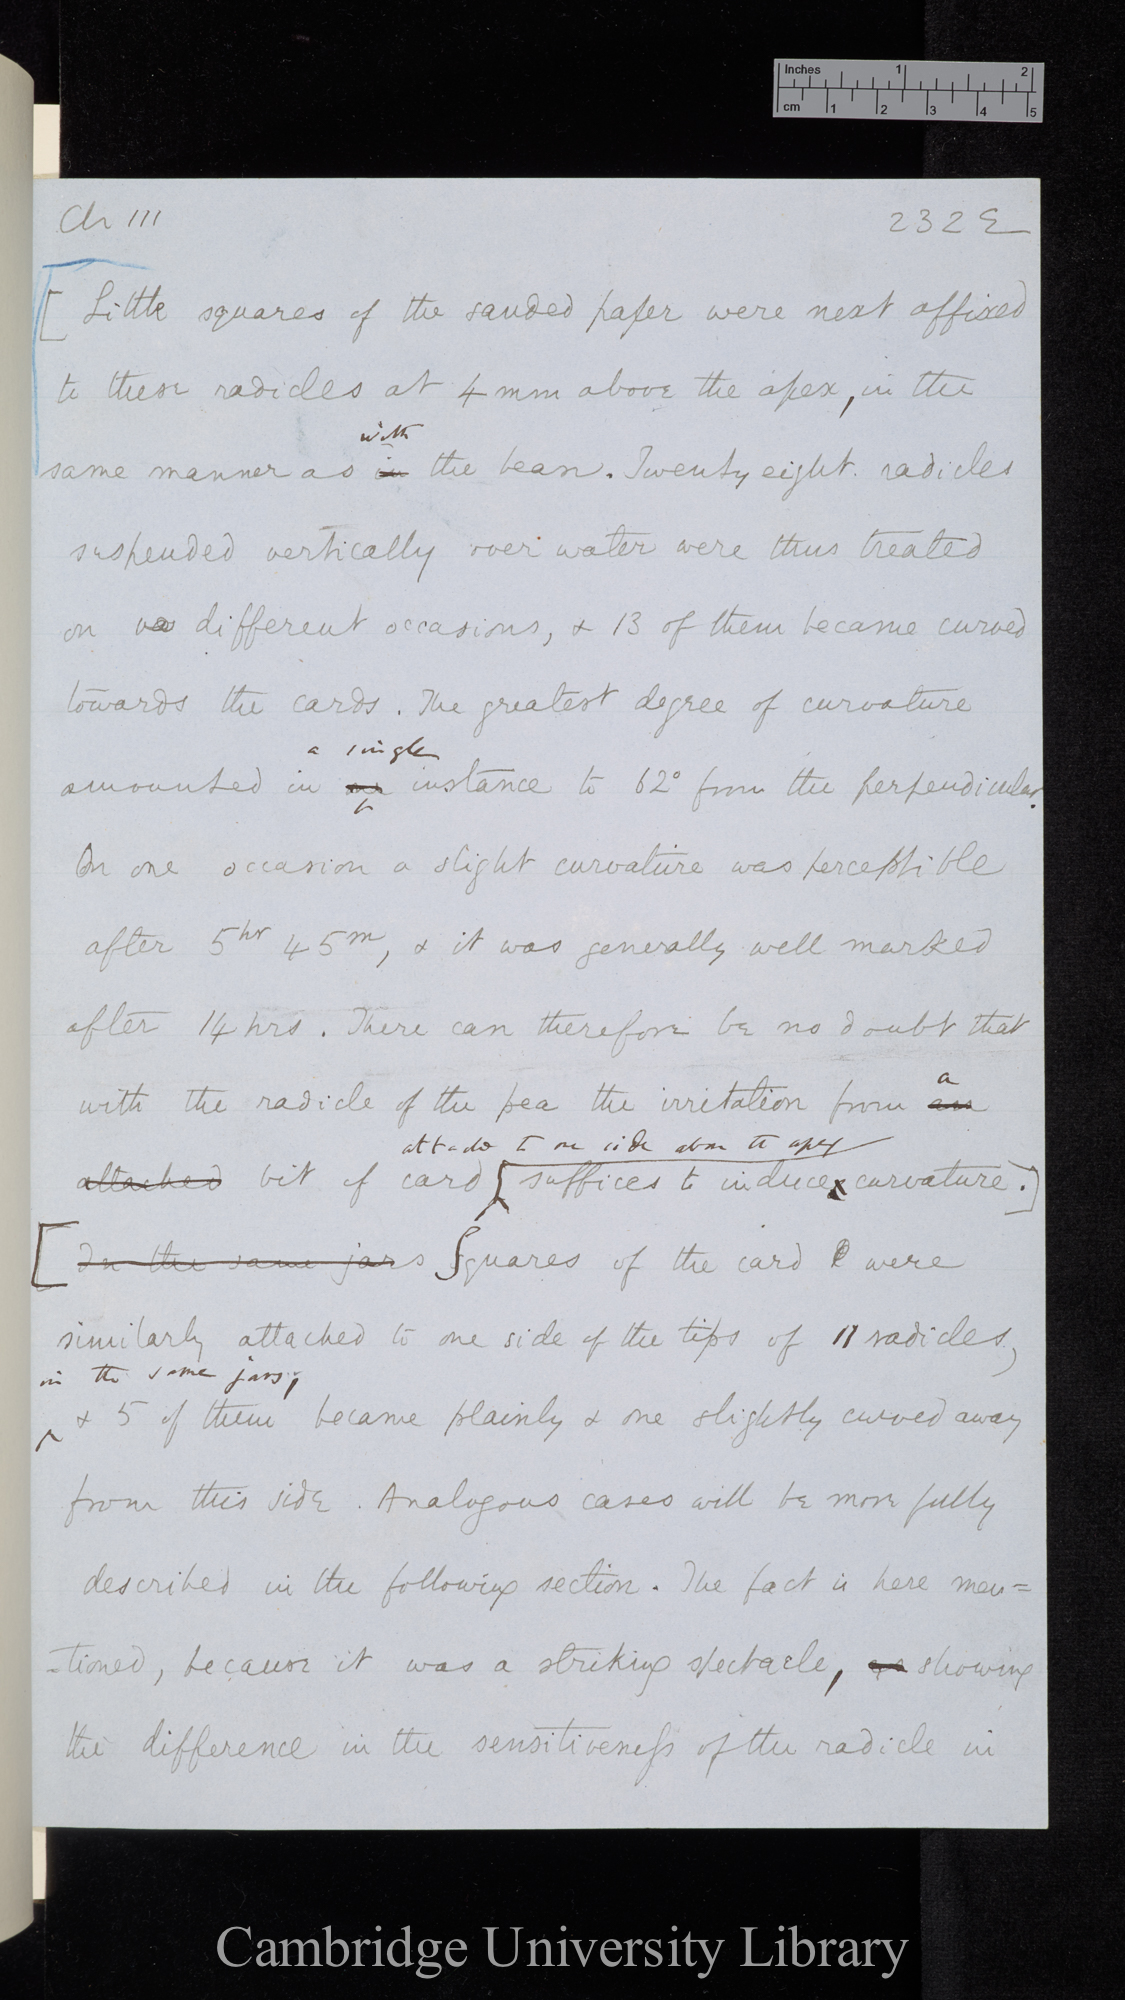 Inches 1 2
cm 1 2 3 4 5
Ch III 232 E
[Little squares of the sanded paper were next affixed
to these radicles at 4 mm above the apex, in the
with
same manner as in the bean. Twenty eight radicles
suspended vertically over water were thus treated
on different occasions, & 13 of them became curved
towards the cards. The greatest degree of curvature
a single
amounted in instance to 62° from the perpendicular.
On one occasion a slight curvature was perceptible
after 5hr 45m, & it was generally well marked
after 14 hrs. There can therefore be no doubt that
a
with the radicle of the pea the irritation from an
attached to one side above the apex
attached bit of card suffices to induce curvature.]
[In the same jars Squares of the card were
similarly attached to one side of the tips of 11 radicles,
in the same jars,
& 5 of them became plainly & one slightly curved away
from this side. Analogous cases will be more fully
described in the following section. The fact is here men=
=tioned, because it was a striking spectacle, as showing
the difference in the sensitiveness of the radicle in
Cambridge University Library